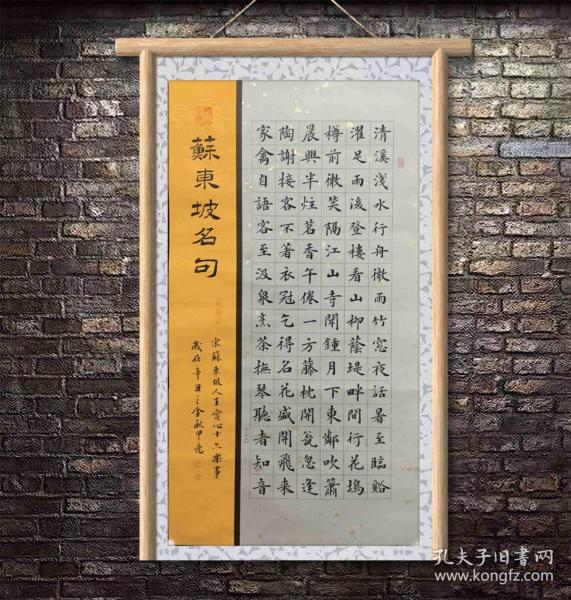 清溪淺水行舟微雨竹窓夜話暑至臨谿
濯足雨後登樓看山柳蔭堤畔間行花塢
樽前微笑隔江山寺聞鍾月下東鄰吹簫
晨興半炷茗香午倦一方藤枕開甕忽逢
陶謝接客不著衣冠乞得名花盛開飛来
家禽自語客至汲泉烹茶撫琴聽者知音
蘇東坡名句
宋蘇東坡人生賞心十六樂事
歲在辛丑之金秋
孔夫子旧书网
www.kongfz.com